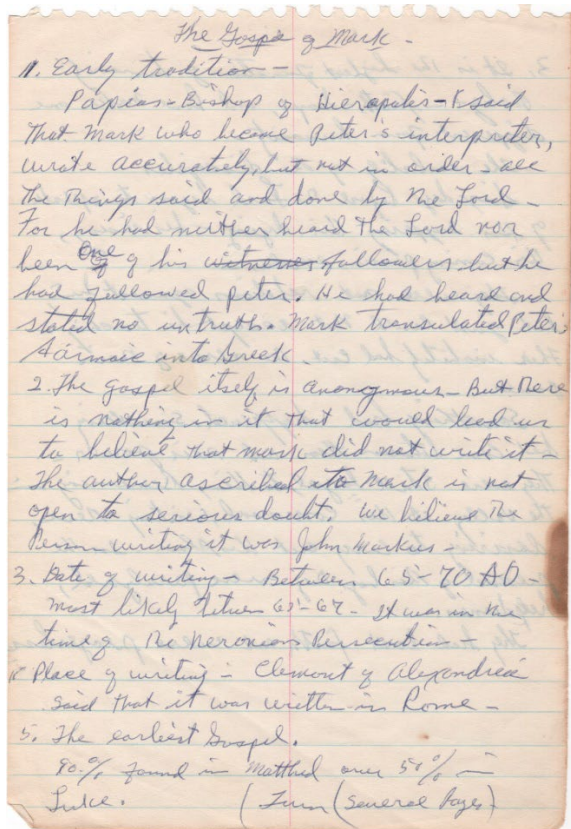 The Gospel of Mark -
1. Early tradition -
Papias - Bishop of Hierapolis - said
that Mark who became Peter's interpreter,
wrote accurately, but not in order - all
the things said and done by the Lord -
For he had neither heard the Lord nor
been one of his witnesses followers but he
had followed peter. He had heard and
stated no untruth. Mark translated Peter's
Armaic into Greek.
2. The gospel itself is anonymous - But there
is nothing in it that would lead us
to believe that mark did not write it -
The author ascribed to Mark is not
open to serious doubt. We believe the
Person writing it was John Markus -
3. Date of writing - Between 65-70 AD -
most likely between 65-67 - It was in the
time of the Neronian Persecution -
Place of writing - Clemont of Alexandria
said that it was written in Rome -
5. The earliest Gospel.
90% found in Matthew over 50% in
Luke. (Turn (Several Pages)